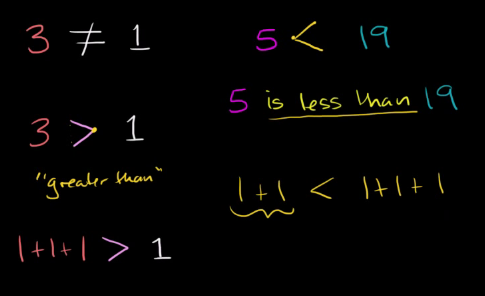 3 ≠ 1
3 > 1
"greater than"
1+1+1 > 1
5 < 19
5 is less than 19
1+1 < 1+1+1